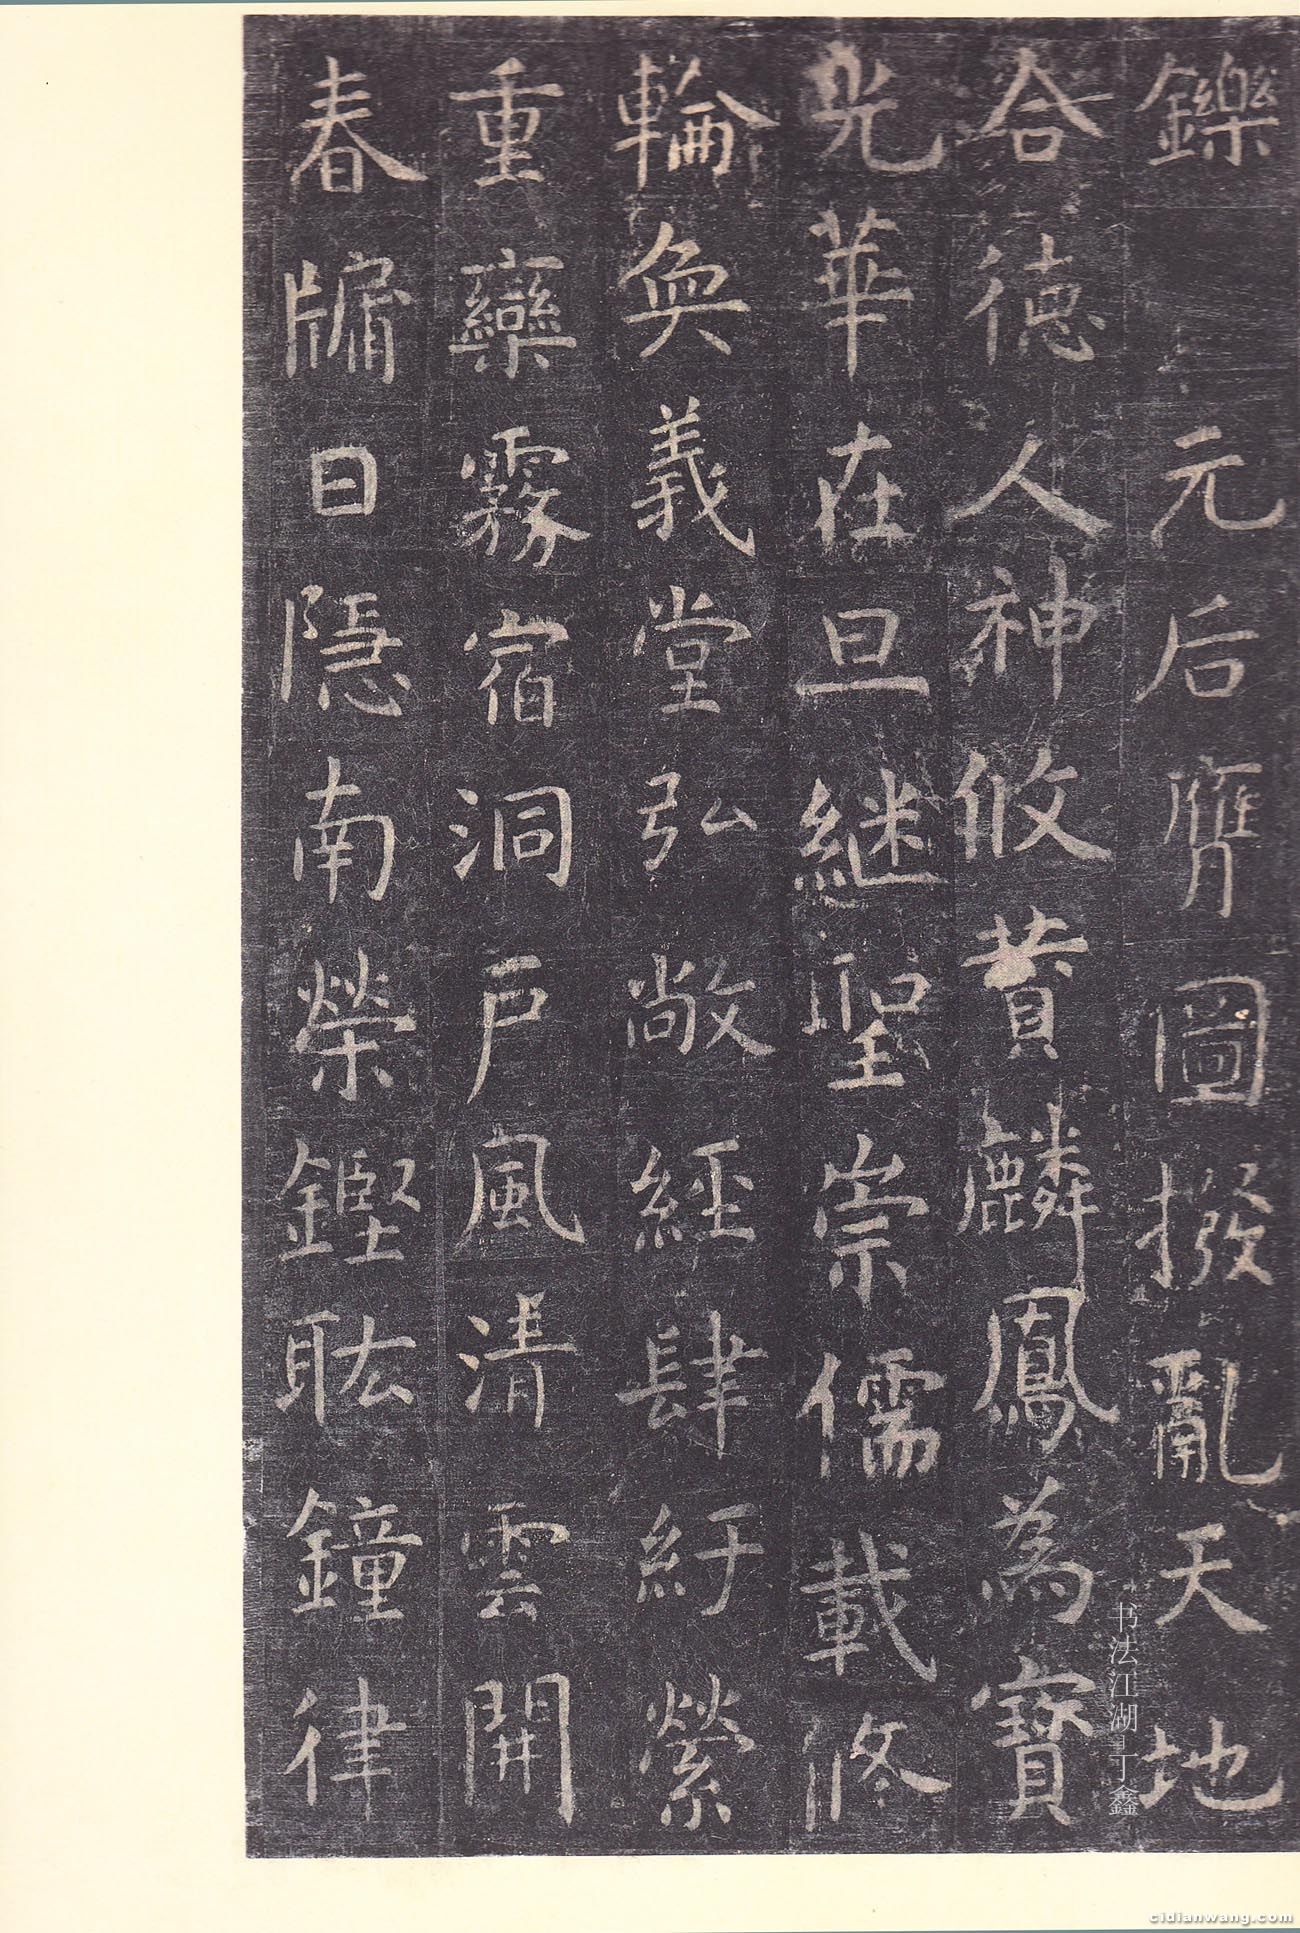 鑠 元后膺圖撥亂天地
合德人神攸賛麟鳳為寶
光華在旦継聖崇儒載脩
輪奐義堂弘敞經肆紆縈
重欒霧宿洞戶風清雲開
春牖日隱南榮鏗耾鐘律
书法江湖 丁鑫
cidianwang.com